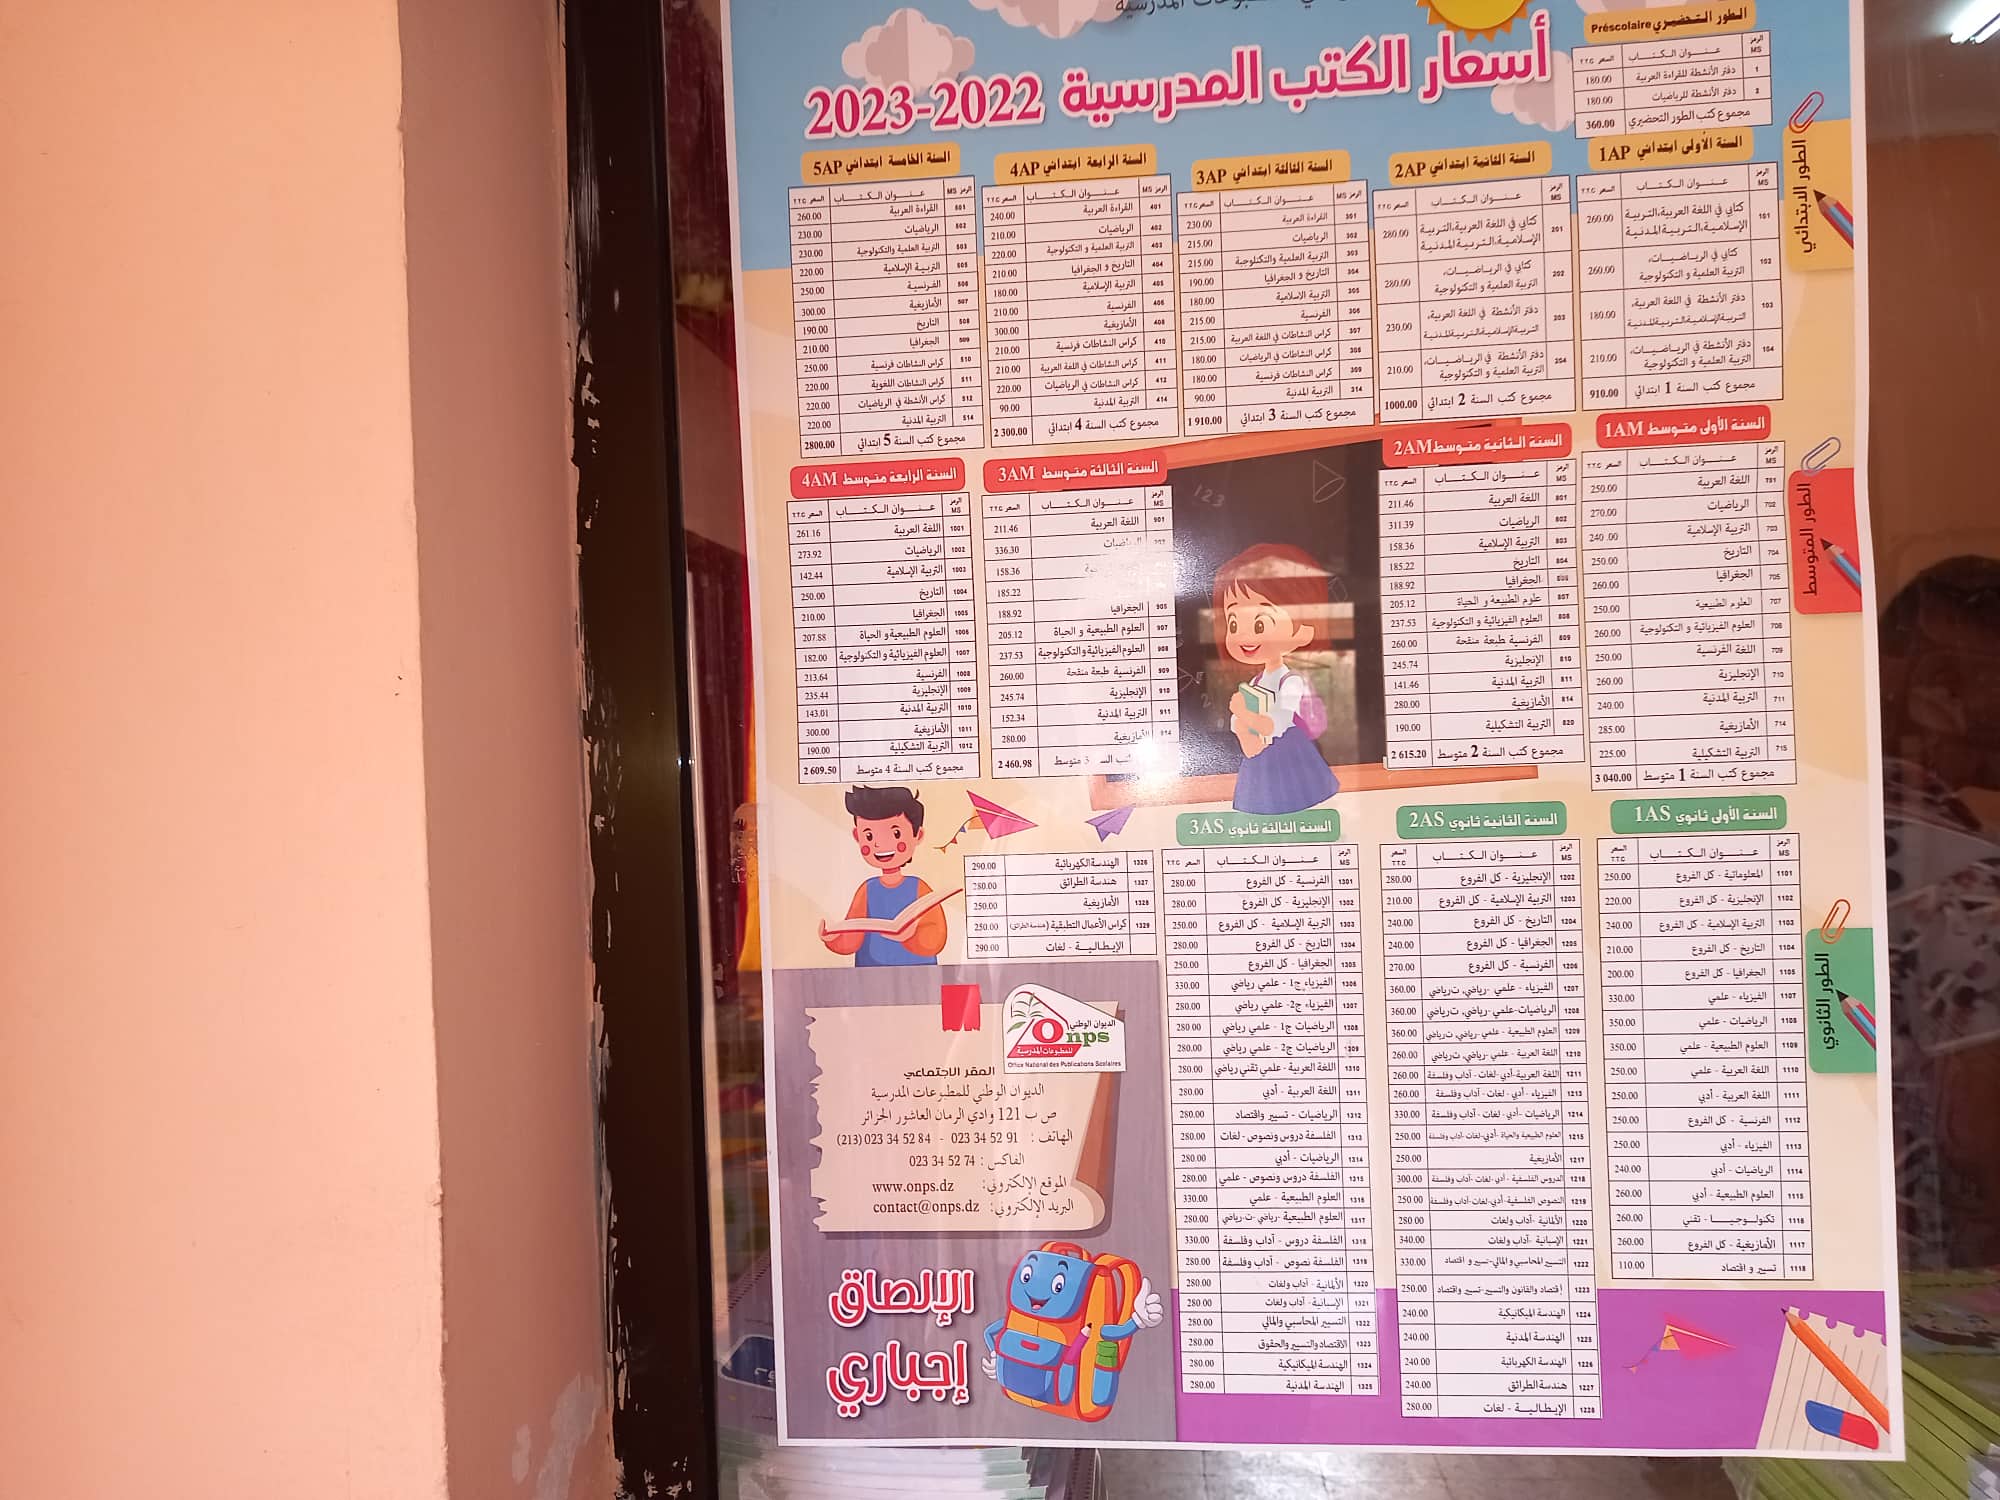 المطبوعات المدرسية
أسعار الكتب المدرسية 2022-2023
الطور التحضيري Préscolaire
الرمز MS عنوان الكتاب السعر TTC
1 دفتر الأنشطة للقراءة العربية 180.00
2 دفتر الأنشطة للرياضيات 180.00
مجموع كتب الطور التحضيري 360.00
الطور الابتدائي
السنة الأولى ابتدائي 1AP
الرمز MS عنوان الكتاب السعر TTC
101 كتابي في اللغة العربية،التربية الإسلامية،التربية المدنية 260.00
102 كتابي في الرياضيات، التربية العلمية و التكنولوجية 260.00
103 دفتر الأنشطة في اللغة العربية، التربيةالإسلاميةالتربيةالمدنية 180.00
104 دفتر الأنشطة في الرياضيات، التربية العلمية و التكنولوجية 210.00
مجموع كتب السنة 1 ابتدائي 910.00
السنة الثانية ابتدائي 2AP
الرمز MS عنوان الكتاب السعر TTC
201 كتابي في اللغة العربية،التربية الإسلامية،التربية المدنية 280.00
202 كتابي في الرياضيات، التربية العلمية و التكنولوجية 280.00
203 دفتر الأنشطة في اللغة العربية، التربيةالإسلاميةالتربيةالمدنية 230.00
204 دفتر الأنشطة في الرياضيات، التربية العلمية و التكنولوجية 210.00
مجموع كتب السنة 2 ابتدائي 1000.00
السنة الثالثة ابتدائي 3AP
الرمز MS عنوان الكتاب السعر TTC
301 القراءة العربية 230.00
302 الرياضيات 215.00
303 التربية العلمية والتكنلوجية 215.00
304 التاريخ و الجغرافيا 190.00
305 التربية الاسلامية 180.00
306 الفرنسية 215.00
307 كراس النشاطات في اللغة العربية 215.00
308 كراس النشاطات في الرياضيات 180.00
309 كراس النشاطات فرنسية 180.00
314 التربية المدنية 90.00
مجموع كتب السنة 3 ابتدائي 1 910.00
السنة الرابعة ابتدائي 4AP
الرمز MS عنوان الكتاب السعر TTC
401 القراءة العربية 240.00
402 الرياضيات 210.00
403 التربية العلمية و التكنولوجية 220.00
404 التاريخ و الجغرافيا 210.00
405 التربية الإسلامية 180.00
406 الفرنسية 210.00
408 الأمازيغية 300.00
410 كراس النشاطات فرنسية 210.00
411 كراس النشاطات في اللغة العربية 210.00
412 كراس النشاطات في الرياضيات 220.00
414 التربية المدنية 90.00
مجموع كتب السنة 4 ابتدائي 2 300.00
السنة الخامسة ابتدائي 5AP
الرمز MS عنوان الكتاب السعر TTC
501 القراءة العربية 260.00
502 الرياضيات 230.00
503 التربية العلمية والتكنولوجية 230.00
505 التربية الإسلامية 220.00
506 الفرنسية 250.00
507 الأمازيغية 300.00
508 التاريخ 190.00
509 الجغرافيا 210.00
510 كراس النشاطات فرنسية 250.00
511 كراس النشاطات اللغوية 220.00
512 كراس الأنشطة في الرياضيات 220.00
514 التربية المدنية 220.00
مجموع كتب السنة 5 ابتدائي 2800.00
الطور المتوسط
السنة الأولى متوسط 1AM
الرمز MS عنوان الكتاب السعر TTC
701 اللغة العربية 250.00
702 الرياضيات 270.00
703 التربية الإسلامية 240.00
704 التاريخ 250.00
705 الجغرافيا 260.00
707 العلوم الطبيعية 250.00
708 العلوم الفيزيائية و التكنولوجية 260.00
709 اللغة الفرنسية 250.00
710 الإنجليزية 260.00
711 التربية المدنية 240.00
714 الأمازيغية 285.00
715 التربية التشكيلية 225.00
مجموع كتب السنة 1 متوسط 3 040.00
السنة الثانية متوسط 2AM
الرمز MS عنوان الكتاب السعر TTC
801 اللغة العربية 211.46
802 الرياضيات 311.39
803 التربية الإسلامية 158.36
804 التاريخ 185.22
الجغرافيا 188.92
807 علوم الطبيعة و الحياة 205.12
808 العلوم الفيزيائية و التكنولوجية 237.53
809 الفرنسية طبعة منقحة 260.00
810 الإنجليزية 245.74
811 التربية المدنية 141.46
814 الأمازيغية 280.00
820 التربية التشكيلية 190.00
مجموع كتب السنة 2 متوسط 2 615.20
السنة الثالثة متوسط 3AM
الرمز MS عنوان الكتاب السعر TTC
901 اللغة العربية 211.46
الرياضيات 336.30
158.36
185.22
905 الجغرافيا 188.92
907 العلوم الطبيعية و الحياة 205.12
908 العلوم الفيزيائية والتكنولوجية 237.53
909 الفرنسية طبعة منقحة 260.00
910 الإنجليزية 245.74
911 التربية المدنية 152.34
914 الأمازيغية 280.00
كتب السنة 3 متوسط 2 460.98
السنة الرابعة متوسط 4AM
الرمز MS عنوان الكتاب السعر TTC
1001 اللغة العربية 261.16
1002 الرياضيات 273.92
1003 التربية الإسلامية 142.44
1004 التاريخ 250.00
1005 الجغرافيا 210.00
1006 العلوم الطبيعية و الحياة 207.88
1007 العلوم الفيزيائية و التكنولوجية 182.00
1008 الفرنسية 213.64
1009 الإنجليزية 235.44
1010 التربية المدنية 143.01
1011 الأمازيغية 300.00
1012 التربية التشكيلية 190.00
مجموع كتب السنة 4 متوسط 2 609.50
الطور الثانوي
السنة الأولى ثانوي 1AS
الرمز MS عنوان الكتاب السعر TTC
1101 المعلوماتية - كل الفروع 250.00
1102 الإنجليزية - كل الفروع 220.00
1103 التربية الإسلامية - كل الفروع 240.00
1104 التاريخ - كل الفروع 210.00
1105 الجغرافيا - كل الفروع 200.00
1107 الفيزياء - علمي 330.00
1108 الرياضيات - علمي 350.00
1109 العلوم الطبيعية - علمي 350.00
1110 اللغة العربية - علمي 250.00
1111 اللغة العربية - أدبي 250.00
1112 الفرنسية - كل الفروع 250.00
1113 الفيزياء - أدبي 250.00
1114 الرياضيات - أدبي 240.00
1115 العلوم الطبيعية - أدبي 260.00
1116 تكنولوجيا - تقني 260.00
1117 الأمازيغية - كل الفروع 260.00
1118 تسيير و اقتصاد 110.00
السنة الثانية ثانوي 2AS
الرمز MS عنوان الكتاب السعر TTC
1202 الإنجليزية - كل الفروع 280.00
1203 التربية الإسلامية - كل الفروع 210.00
1204 التاريخ - كل الفروع 240.00
1205 الجغرافيا - كل الفروع 240.00
1206 الفرنسية - كل الفروع 270.00
1207 الفيزياء - علمي -رياضي، ت رياضي 360.00
1208 الرياضيات-علمي -رياضي، ت رياضي 360.00
1209 العلوم الطبيعية - علمي -رياضي، ت رياضي 360.00
1210 اللغة العربية - علمي -رياضي، ت رياضي 260.00
1211 اللغة العربية-أدبي-لغات - آداب وفلسفة 260.00
1213 الفيزياء - أدبي - لغات - آداب وفلسفة 260.00
1214 الرياضيات -أدبي- لغات - آداب وفلسفة 330.00
1215 العلوم الطبيعية والحياة -أدبي-لغات -آداب وفلسفة 250.00
1217 الأمازيغية 250.00
1218 الدروس الفلسفية - أدبي - لغات -آداب وفلسفة 300.00
1219 النصوص الفلسفية-أدبي-لغات-آداب وفلسفة 250.00
1220 الألمانية -آداب ولغات 280.00
1221 الإسبانية -آداب ولغات 340.00
1222 التسيير المحاسبي والمالي-تسيير و اقتصاد 330.00
1223 إقتصاد والقانون والتسيير-تسيير واقتصاد 250.00
1224 الهندسة الميكانيكية 240.00
1225 الهندسة المدنية 240.00
1226 الهندسة الكهربائية 240.00
1227 هندسة الطرائق 240.00
1228 الإيطالية - لغات 280.00
السنة الثالثة ثانوي 3AS
الرمز MS عنوان الكتاب السعر TTC
1301 الفرنسية - كل الفروع 280.00
1302 الإنجليزية - كل الفروع 280.00
1303 التربية الإسلامية - كل الفروع 250.00
1304 التاريخ - كل الفروع 280.00
1305 الجغرافيا - كل الفروع 250.00
1306 الفيزياء ج1 - علمي رياضي 330.00
1307 الفيزياء ج2- علمي رياضي 280.00
1308 الرياضيات ج1 - علمي رياضي 280.00
1309 الرياضيات ج2 - علمي رياضي 280.00
1310 اللغة العربية - علمي تقني رياضي 280.00
1311 اللغة العربية - أدبي 280.00
1312 الرياضيات - تسيير واقتصاد 280.00
1313 الفلسفة دروس ونصوص - لغات 280.00
1314 الرياضيات - أدبي 280.00
1315 الفلسفة دروس ونصوص - علمي 280.00
1316 العلوم الطبيعية - علمي 330.00
1317 العلوم الطبيعية -رياضي -ت-رياضي 280.00
1318 الفلسفة دروس - آداب وفلسفة 330.00
1319 الفلسفة نصوص - آداب وفلسفة 280.00
1320 الألمانية - آداب ولغات 280.00
1321 الإسبانية - آداب ولغات 280.00
1322 التسيير المحاسبي والمالي 280.00
1323 الاقتصاد والتسيير والحقوق 280.00
1324 الهندسة الميكانيكية 280.00
1325 الهندسة المدنية 280.00
1326 الهندسة الكهربائية 290.00
1327 هندسة الطرائق 280.00
1328 الأمازيغية 250.00
1329 كراس الأعمال التطبقية (هندسة الطرائق) 250.00
الإيطالية - لغات 290.00
الديوان الوطني
Onps
للمطبوعات المدرسية
Office National des Publications Scolaires
المقر الاجتماعي
الديوان الوطني للمطبوعات المدرسية
ص ب 121 وادي الرمان العاشور الجزائر
الهاتف : 023 34 52 91 - 023 34 52 84 (213)
الفاكس : 023 34 52 74
الموقع الإلكتروني: www.onps.dz
البريد الإلكتروني: contact@onps.dz
الإلصاق
إجباري
123